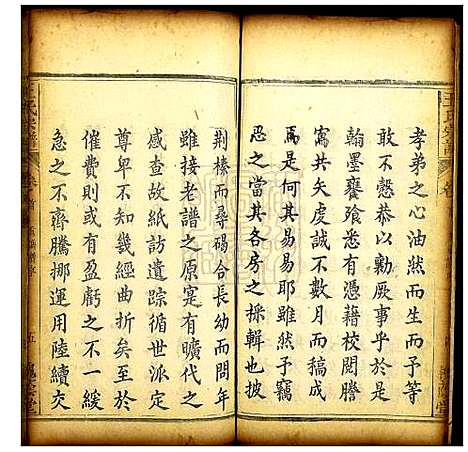 王氏宗譜
孝弟之心油然而生而予等
敢不慇恭以勷厥事乎於是
翰墨饔飱悉有憑藉校閱謄
寫共矢虔誠不數月而稿成
焉是何其易易耶雖然予竊
忍之當其各房之採輯也披
荆榛而尋碣合長幼而問年
雖接老譜之原寔有曠代之
感查故紙訪遺踪循世派定
尊卑不知幾經曲折矣至於
催費則有盈虧之不一緩
急之不齊騰挪運用陸續交
王氏宗譜
卷首
五
槐蔭堂